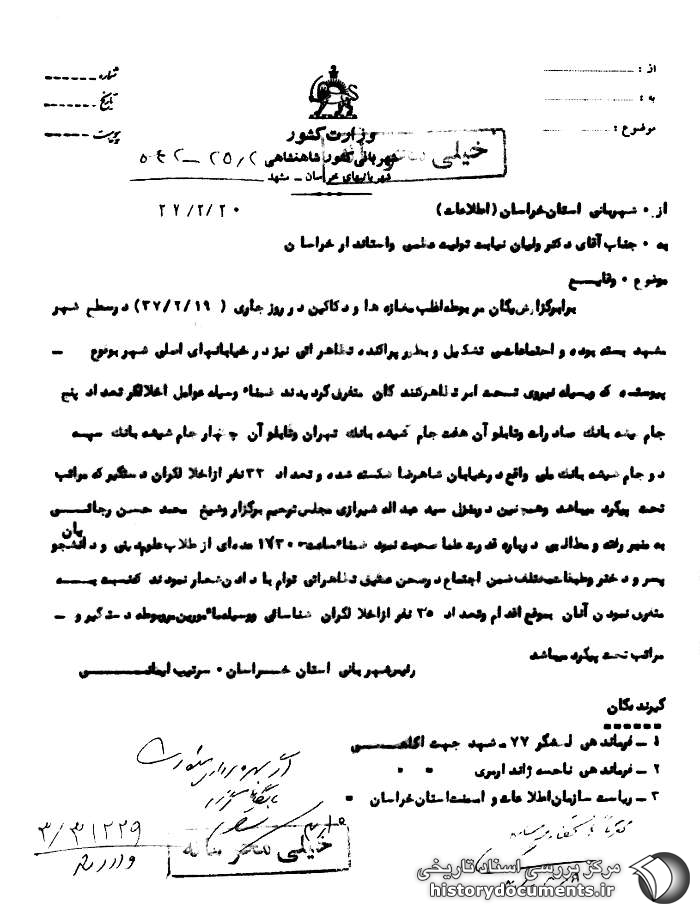 از :
به :
موضوع :
شماره
تاریخ
پیوست
وزارت کشور
شهربانی کشور شاهنشاهی
شهربانیهای خراسان ـ مشهد
خیلی محرمانه
۲۵/۲ – ۵۰۴۲
از ۰ شهربانی استان خراسان (اطلاعات) ۲۷/۲/۲۰
به ۰ جناب آقای دکتر ولیان نیابت تولیت عظمی واستاندار خراسان
موضوع ۰ وقایع
برابر گزارش یگان مربوطه اغلب مغازه ها و دکاکین در روز جاری ( ۳۷/۲/۱۹) در سطح شهر
مشهد بسته بوده و اجتماعاتی تشکیل و بطور پراکنده تظاهراتی نیز در خیابانهای اصلی شهر بوقوع ـ
پیوسته که وسیله نیروی تحت امر تظاهرکنندگان متفرق گردیدند ضمناً وسیله عوامل اخلالگر تعداد پنج
جام شیشه بانک صادرات وتابلو آن هفت جام شیشه بانک تهران وتابلو آن چهار جام شیشه بانک سپه
دو جام شیشه بانک ملی واقع در خیابان شاهرضا شکسته شده و تعداد ۳۲ نفر از اخلالگران دستگیر که مراتب
تحت پیگرد میباشد وهمچنین در منزل سید عبداله شیرازی مجلس ترحیم برگزار وشیخ محمد حسن رجائی
یان
به منبر رفته و مطالبی درباره قدرت علما صحبت نمود ضمناً ساعت ۱۷۳۰ عده‌ای از طلاب علوم دینی و دانشجو
پسر و دختر وطبقات مختلف ضمن اجتماع در صحن عتیق تظاهراتی توام با دادن شعار نمودند که نسبت به
متفرق نمودن آنان بموقع اقدام وتعداد ۳۵ نفر از اخلالگران شناسائی ووسیله مأمورین مربوطه دستگیر و ـ
مراتب تحت پیگرد میباشد
رئیس شهربانی استان خراسان ۰ سرتیپ
گیرندگان
۱ ـ فرماندهی لشگر ۷۷ مشهد جهت آگاهی
۲ ـ فرماندهی ناحیه ژاندارمری " "
۳ ـ ریاست سازمان اطلاعات و امنیت استان خراسان "
۳/۳۱۲۲۹
خیلی محرمانه
مرکز بررسی اسناد تاریخی
historydocuments.ir